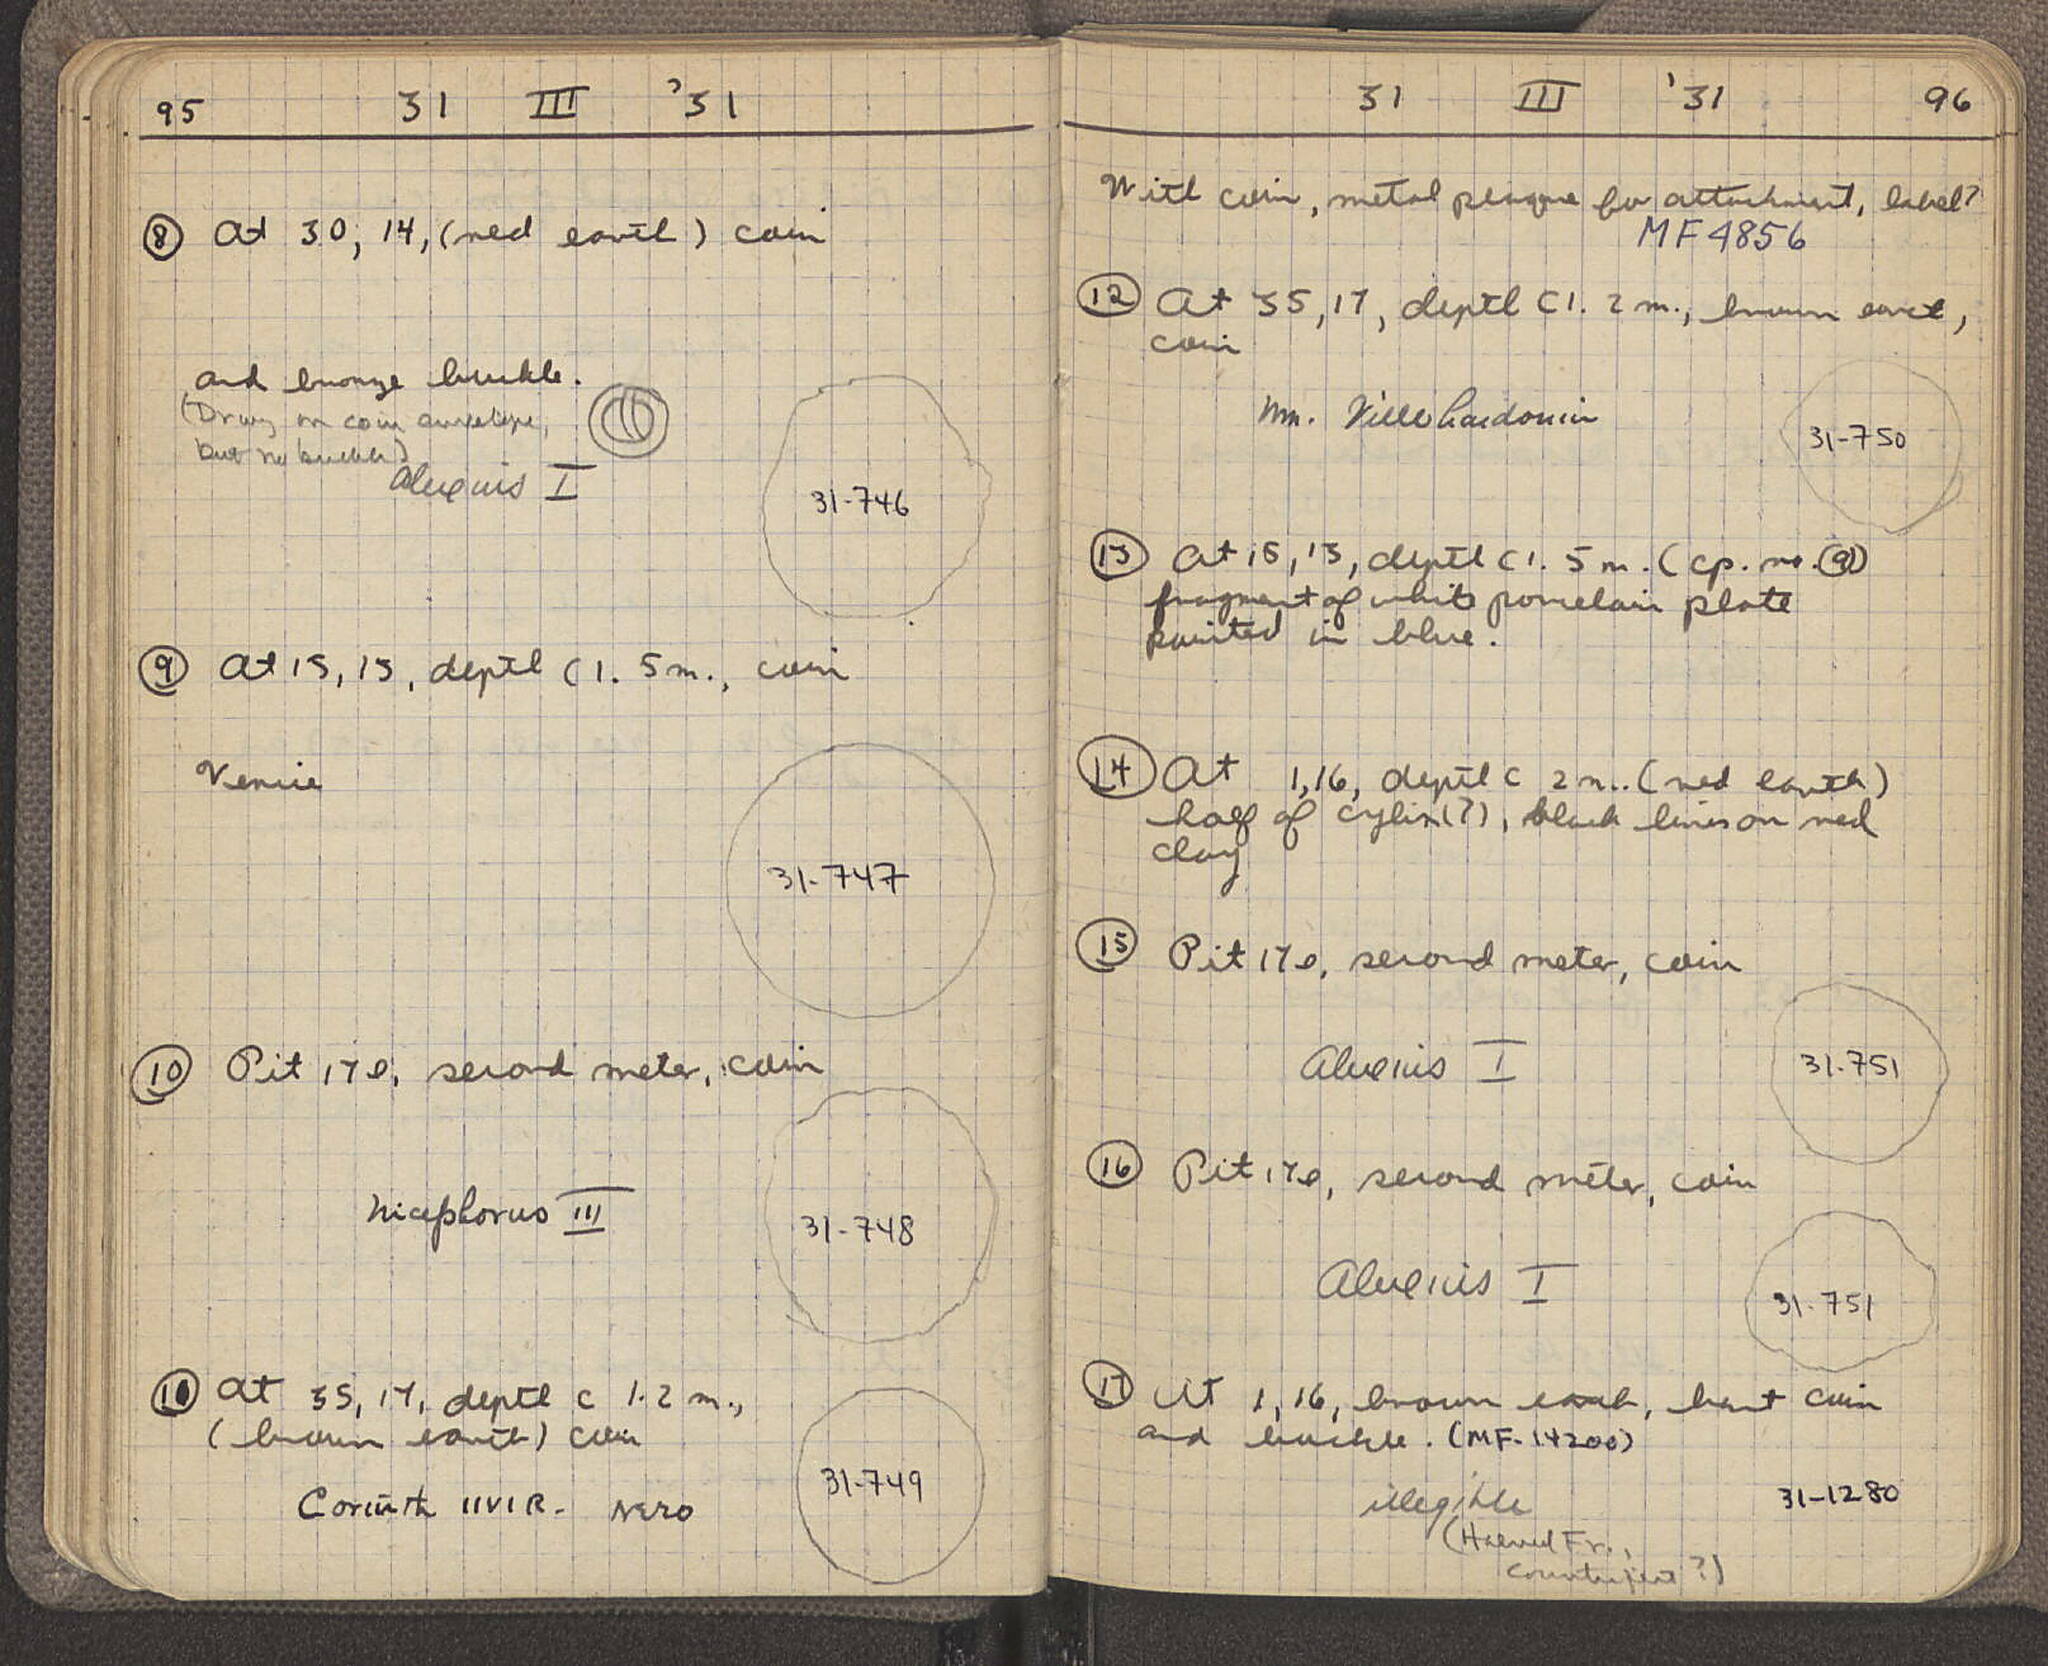 95 31 III '31
⑧ At 30, 14, (red earth) coin
and bronze buckle.
(Drawg on coin envelope,
but no buckle)
Alexius I
31-746
⑨ At 15, 13, depth c 1.5 m., coin
Venice
31-747
⑩ Pit 17e, second meter, coin
Nicephorus III
31-748
⑪ At 35, 17, depth c 1.2 m.,
(brown earth) coin
Corinth IIVIR - Nero
31-749
31 III '31 96
With coin, metal plaque for attachment, label?
MF 4856
⑫ At 35, 17, depth c 1.2 m., brown earth,
coin
Wm. Villehardouin
31-750
⑬ At 15, 13, depth c 1.5 m. (cp. no. ⑨)
fragment of white porcelain plate
painted in blue.
⑭ At 1,16, depth c 2 m.. (red earth)
half of cylix(?), black lines on red
clay
⑮ Pit 17e, second meter, coin
Alexius I
31-751
⑯ Pit 17e, second meter, coin
Alexius I
31-751
⑰ At 1, 16, brown earth, bent coin
and buckle. (MF-14200)
illegible
31-1280
(Halved Fr.,
Counterfeit?)